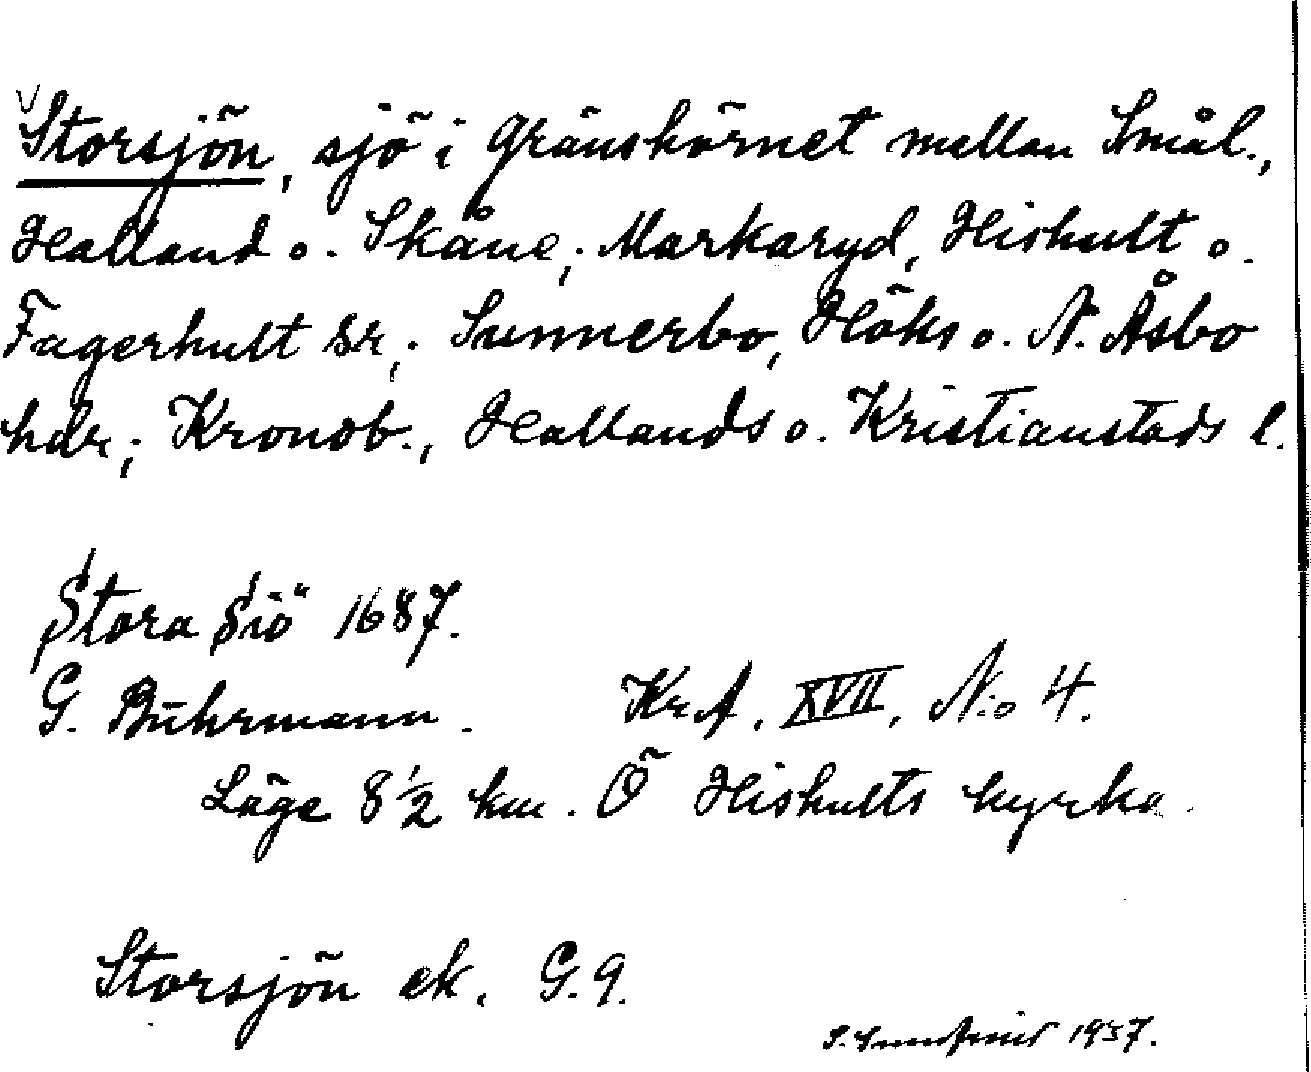 Storsjön, sjö i gränshörnet mellan Smål.,
Halland o. Skåne; Markaryd, Hishult o.
Fagerhult sr; Sunnerbo, Höks o. N. Åsbo
hdr; Kronob., Hallands o. Kristianstads l.
Stora Siö 1687.
G. Buhrmann. Kr A. XVII, N:o 4.
Läge 8 1/2 km. Ö Hishults kyrka.
Storsjön ek. G. 9.
S. 1937.